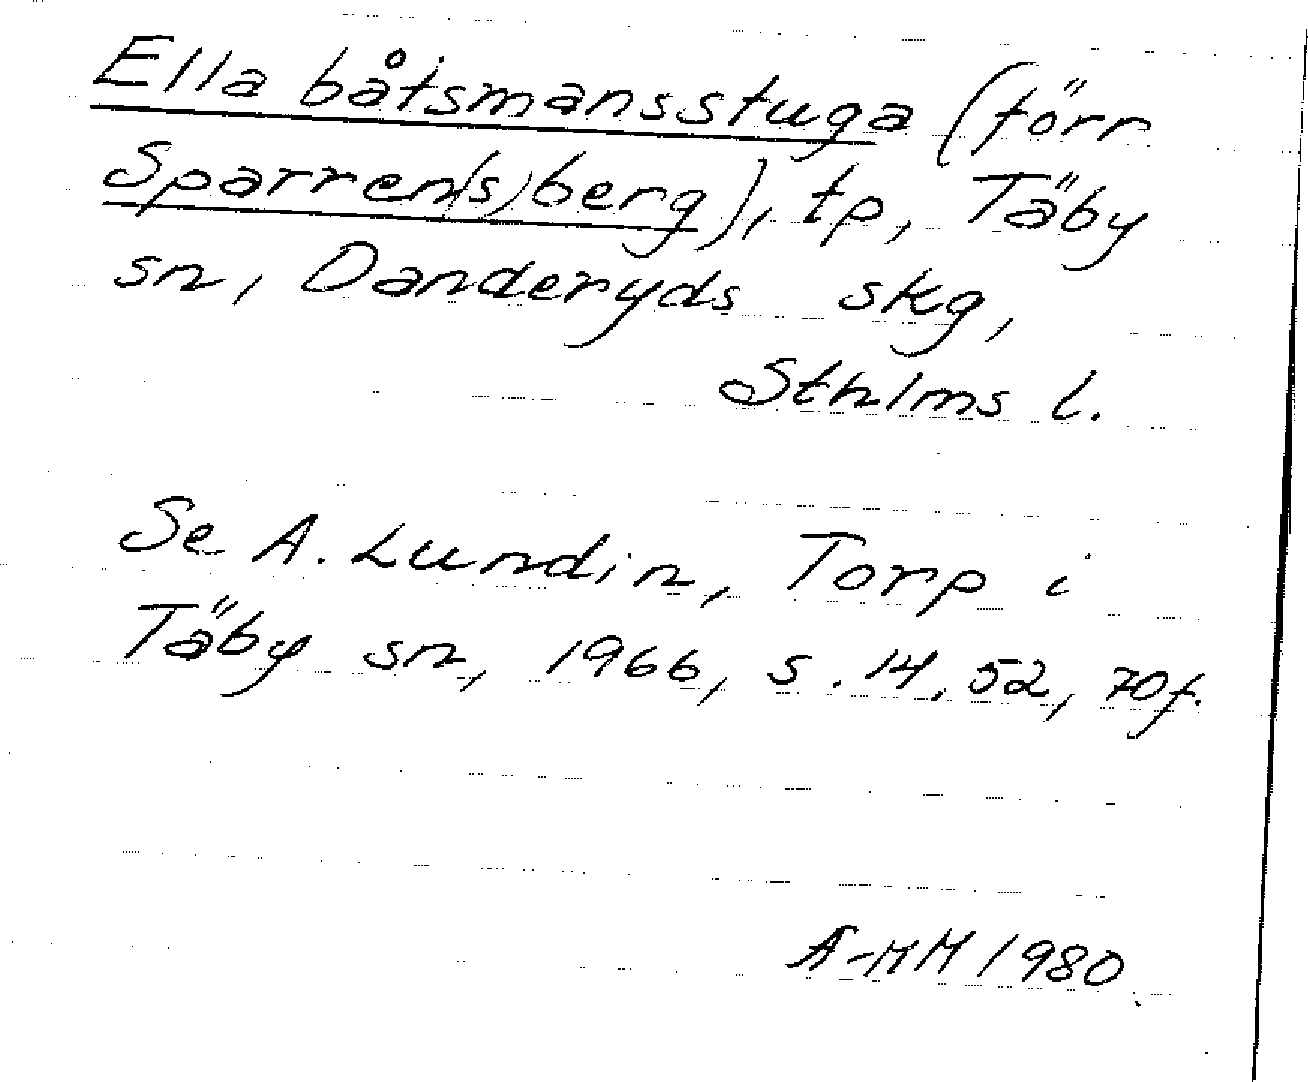 Ella båtsmansstuga (förr
Sparren(s)berg), tp, Täby
sn, Danderyds skg,
Sthlms l.
Se A. Lundin, Torp i
Täby sn, 1966, s. 14, 52, 70f.
A-MM 1980